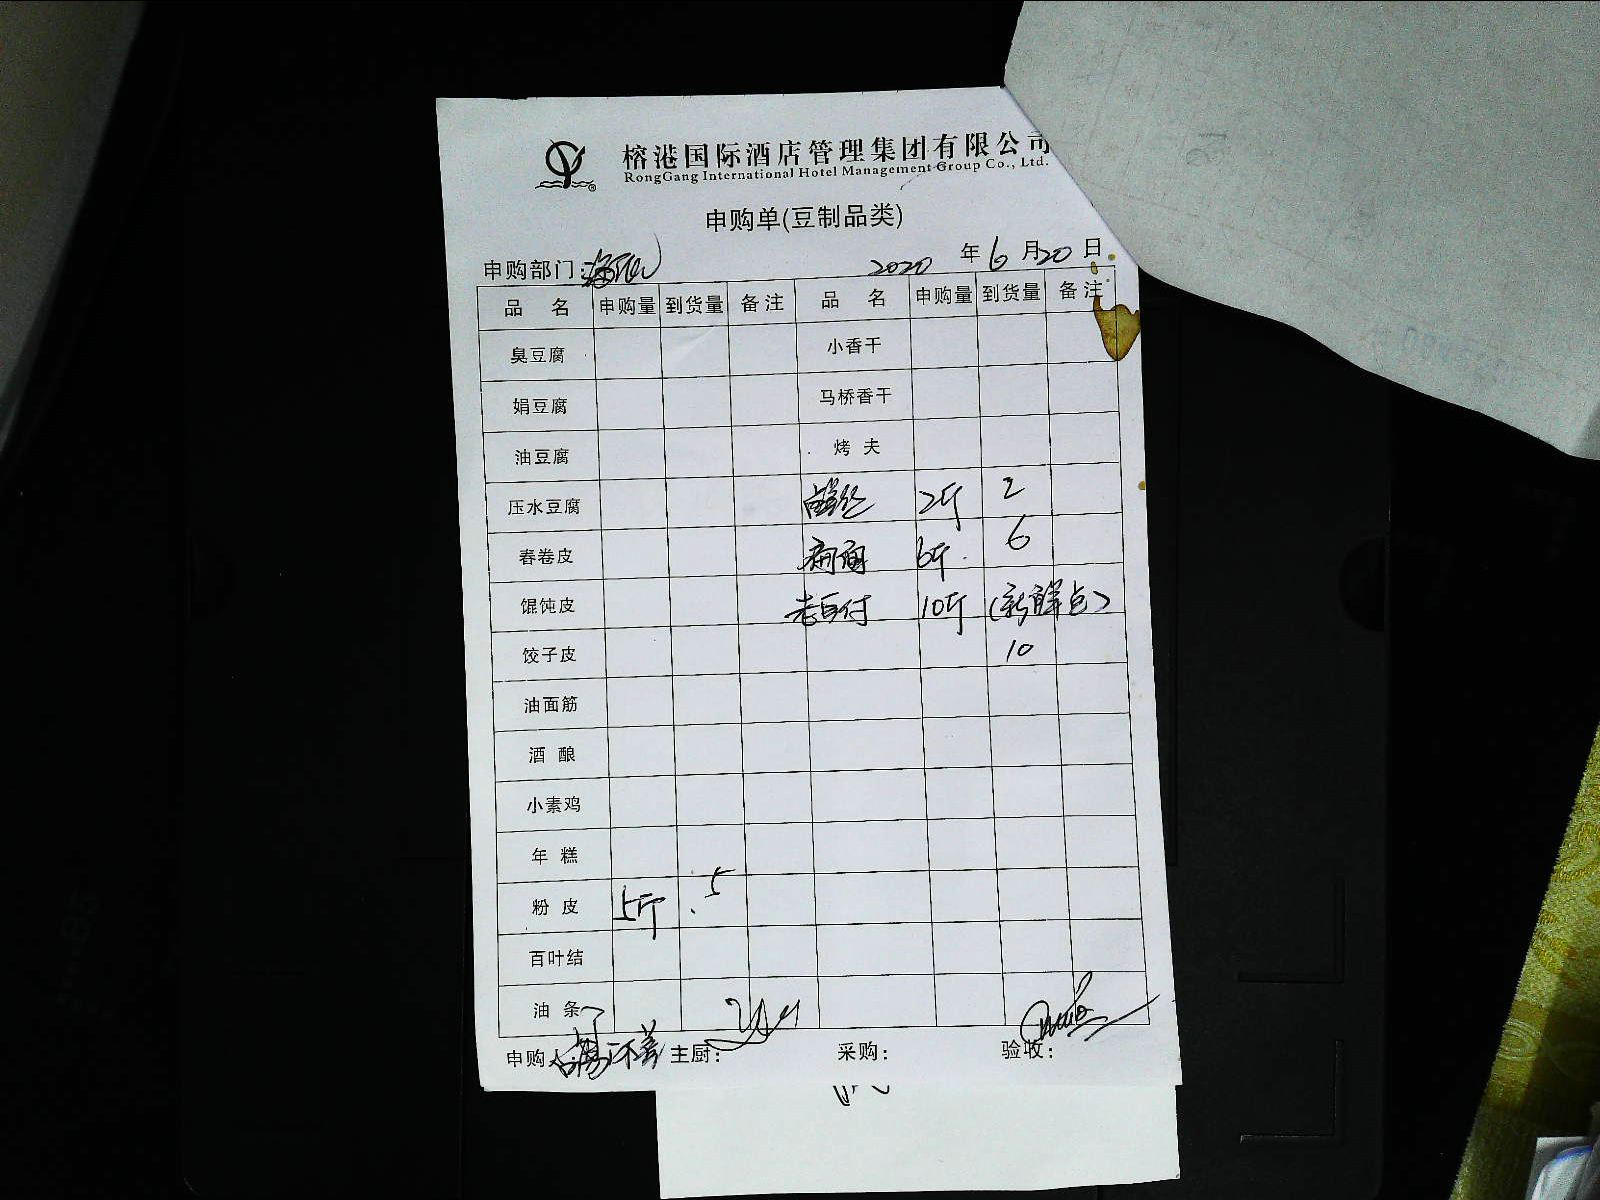 榕港国际酒店管理集团有限公司
RongGang International Hotel Management Group Co., Ltd.
申购单(豆制品类)
申购部门: 2020 年 6 月 20 日
品 名 申购量 到货量 备注 品 名 申购量 到货量 备注
臭豆腐 小香干
娟豆腐 马桥香干
油豆腐 烤 夫
压水豆腐 2斤 2
春卷皮 6斤 6
馄饨皮 老豆付 10斤 (新鲜点)
饺子皮 10
油面筋
酒 酿
小素鸡
年 糕
粉 皮 5斤 5
百叶结
油 条
申购人: 主厨: 采购: 验收: